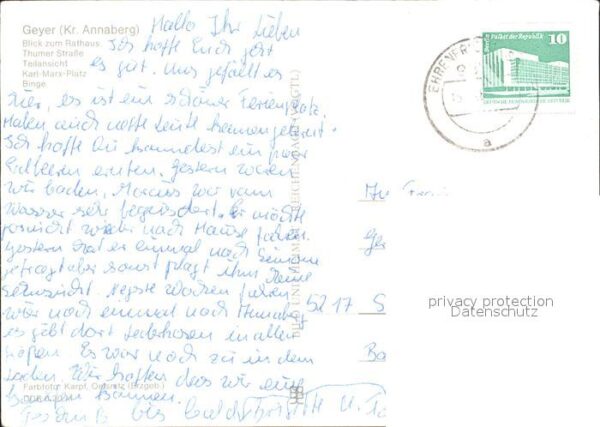 Geyer (Kr. Annaberg)
Blick zum Rathaus
Thumer Straße
Teilansicht
Karl-Marx-Platz
Binge
Hallo Ihr Lieben
Ich hoffe Euch geht
es gut. Uns gefällt es
hier, es ist ein schöner Ferienplatz.
Haben auch nette Leute kennengelernt.
Ich hoffe Du konntest ein paar
Erdbeeren ernten. Gestern waren
wir baden, Marcus war vom
Wasser sehr begeistert. Er möchte
gar nicht wieder nach Hause fahren.
Gestern hat er einmal nach
gefragt aber sonst plagt ihm keine
Sehnsucht. Nächste Wochen fahren
wir noch einmal nach
es gibt dort Lederhosen in allen
Größen. Es war noch zu in dem
Laden. Wir hoffen das wir eine
bekommen können.
Gruß bis bald
Farbfoto: Karpf, Oelsnitz (Erzgeb.)
BILD UND HEIMAT REICHENBACH (VOGTL)
Berlin Palast der Republik
10
DEUTSCHE DEMOKRATISCHE REPUBLIK
a
5217 S
Ba
privacy protection
Datenschutz